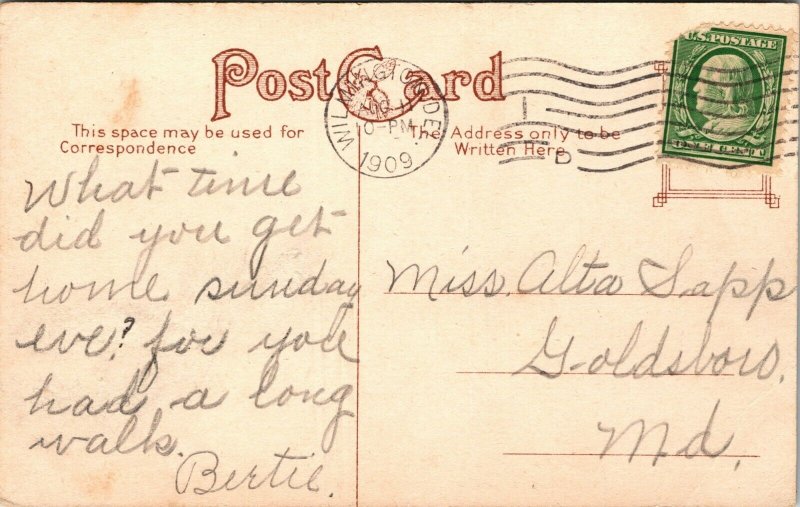 Post Card
This space may be used for
Correspondence
The Address only to be
Written Here
WILMINGTON, DEL.
10-PM
1909
D
U.S. POSTAGE
ONE CENT
What time
did you get
home sunday
eve? for you
had a long
walk.
Bertie.
Miss Alta Sapp
Goldsboro,
Md.